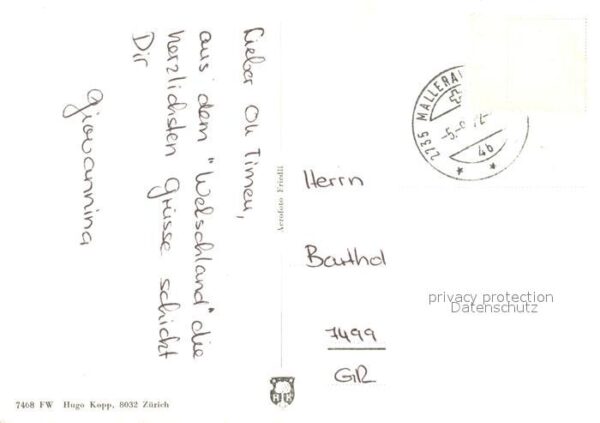 Lieber Oli Timeu,
aus dem "Welschland" die
herzlichsten Grüsse schickt
Dir
Giovannina
Aerofoto Friedli
Herrn
Barthol
7499
GR
2735 MALLERA
4b
privacy protection
Datenschutz
HK
7468 FW Hugo Kopp, 8032 Zürich